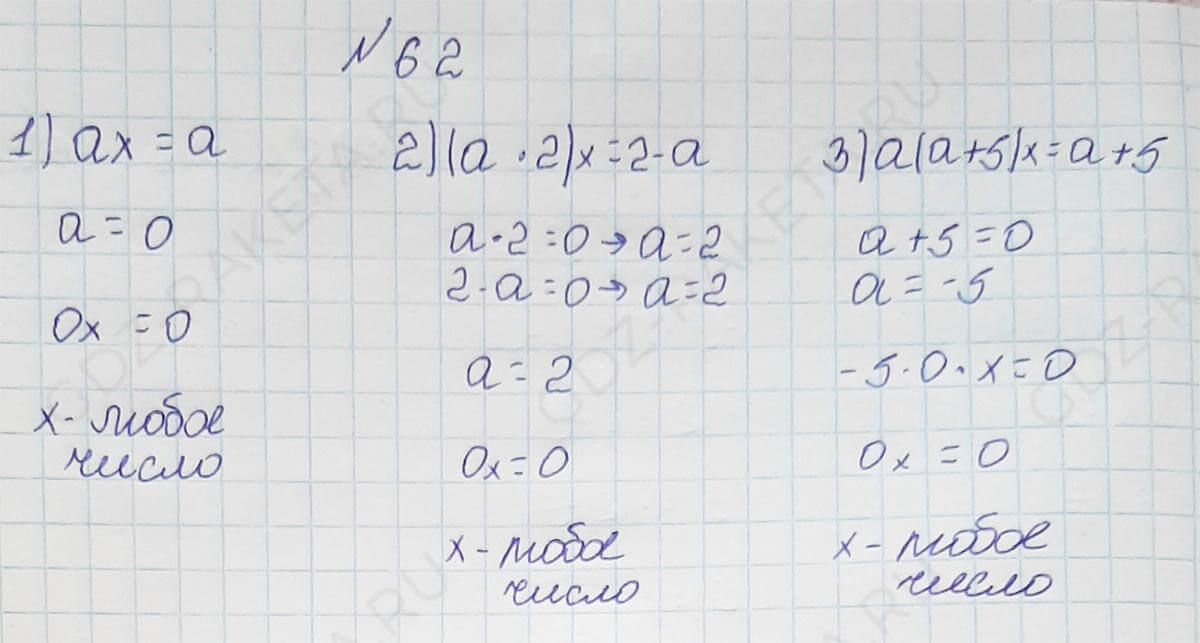 № 62
1) ax = a
a = 0
0x = 0
x - любое
число
2) (a - 2)x = 2 - a
a - 2 = 0 → a = 2
2 - a = 0 → a = 2
a = 2
0x = 0
x - любое
число
3) a(a + 5)x = a + 5
a + 5 = 0
a = -5
-5 · 0 · x = 0
0x = 0
x - любое
число
GDZ-RAKETA.RU
GDZ-RAKETA.RU